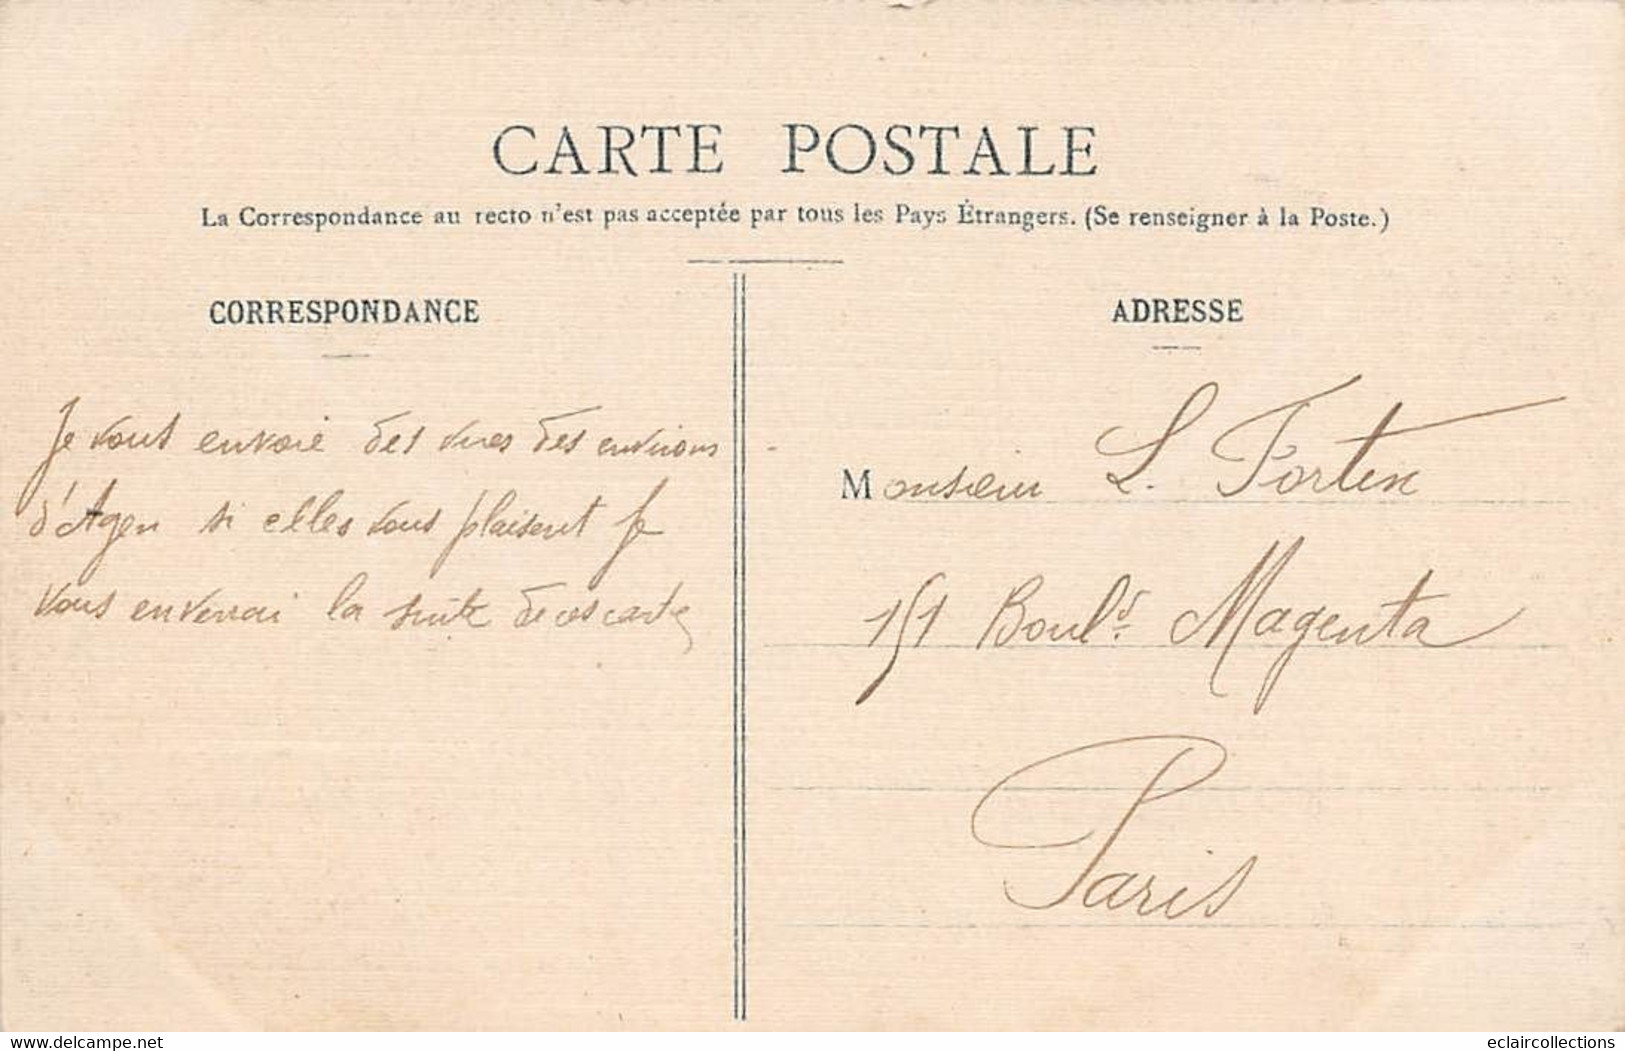 CARTE POSTALE
La Correspondance au recto n'est pas acceptée par tous les Pays Étrangers. (Se renseigner à la Poste.)
CORRESPONDANCE
Je vous envoie des vues des environs
d'Agen si elles vous plaisent je
vous enverrai la suite de ces cartes
ADRESSE
Monsieur L. Fortin
151 Boul.d Magenta
Paris
www.delcampe.net
eclaircollections